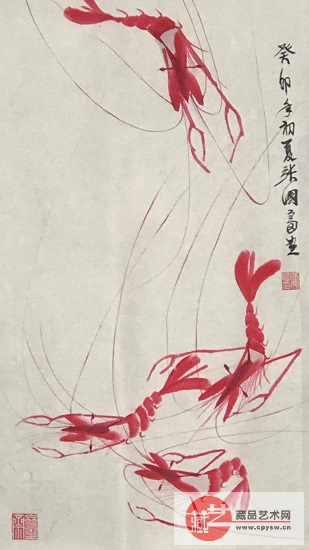 癸卯年初夏张国富画
藏品艺术网
www.cpysw.cn